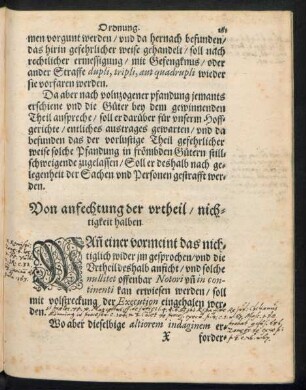 Ordnung.
men vorgunt werden / vnd da hernach befunden /
das hirin gefehrlicher weise gehandelt / soll nach
rechtlicher ermessigung / mit Gefengknus / oder
ander Straffe dupli, tripli, aut quadrupli wieder
sie vorfaren werden.
Da aber nach volnzogener pfandung jemants
erschiene vnd die Güter bey dem gewinnenden
Theil ansprecht / soll er darüber für vnserm Hoff-
gerichte / entliches austrages gewarten / vnd da
befunden das der vorlustige Theil gefehrlicher
weise solche Pfandung in frömbden Gütern still-
schweigende zugelassen / Soll er deshalb nach ge-
legenheit der Sachen vnd Personen gestrafft wer-
den.
Von anfechtung der vrtheil / nich-
tigkeit halben.
WAñ einer vormeint das nich-
tiglich wider jm gesprochen / vnd die
Vrtheil deshalb anficht / vnd solche
nullitet offenbar Notori vñ in con-
tinenti kan erwiesen werden / soll
mit volstreckung der Execution eingehalten wer-
den.
Wo aber dieselbige altiorem indaginem er-
X
forder-